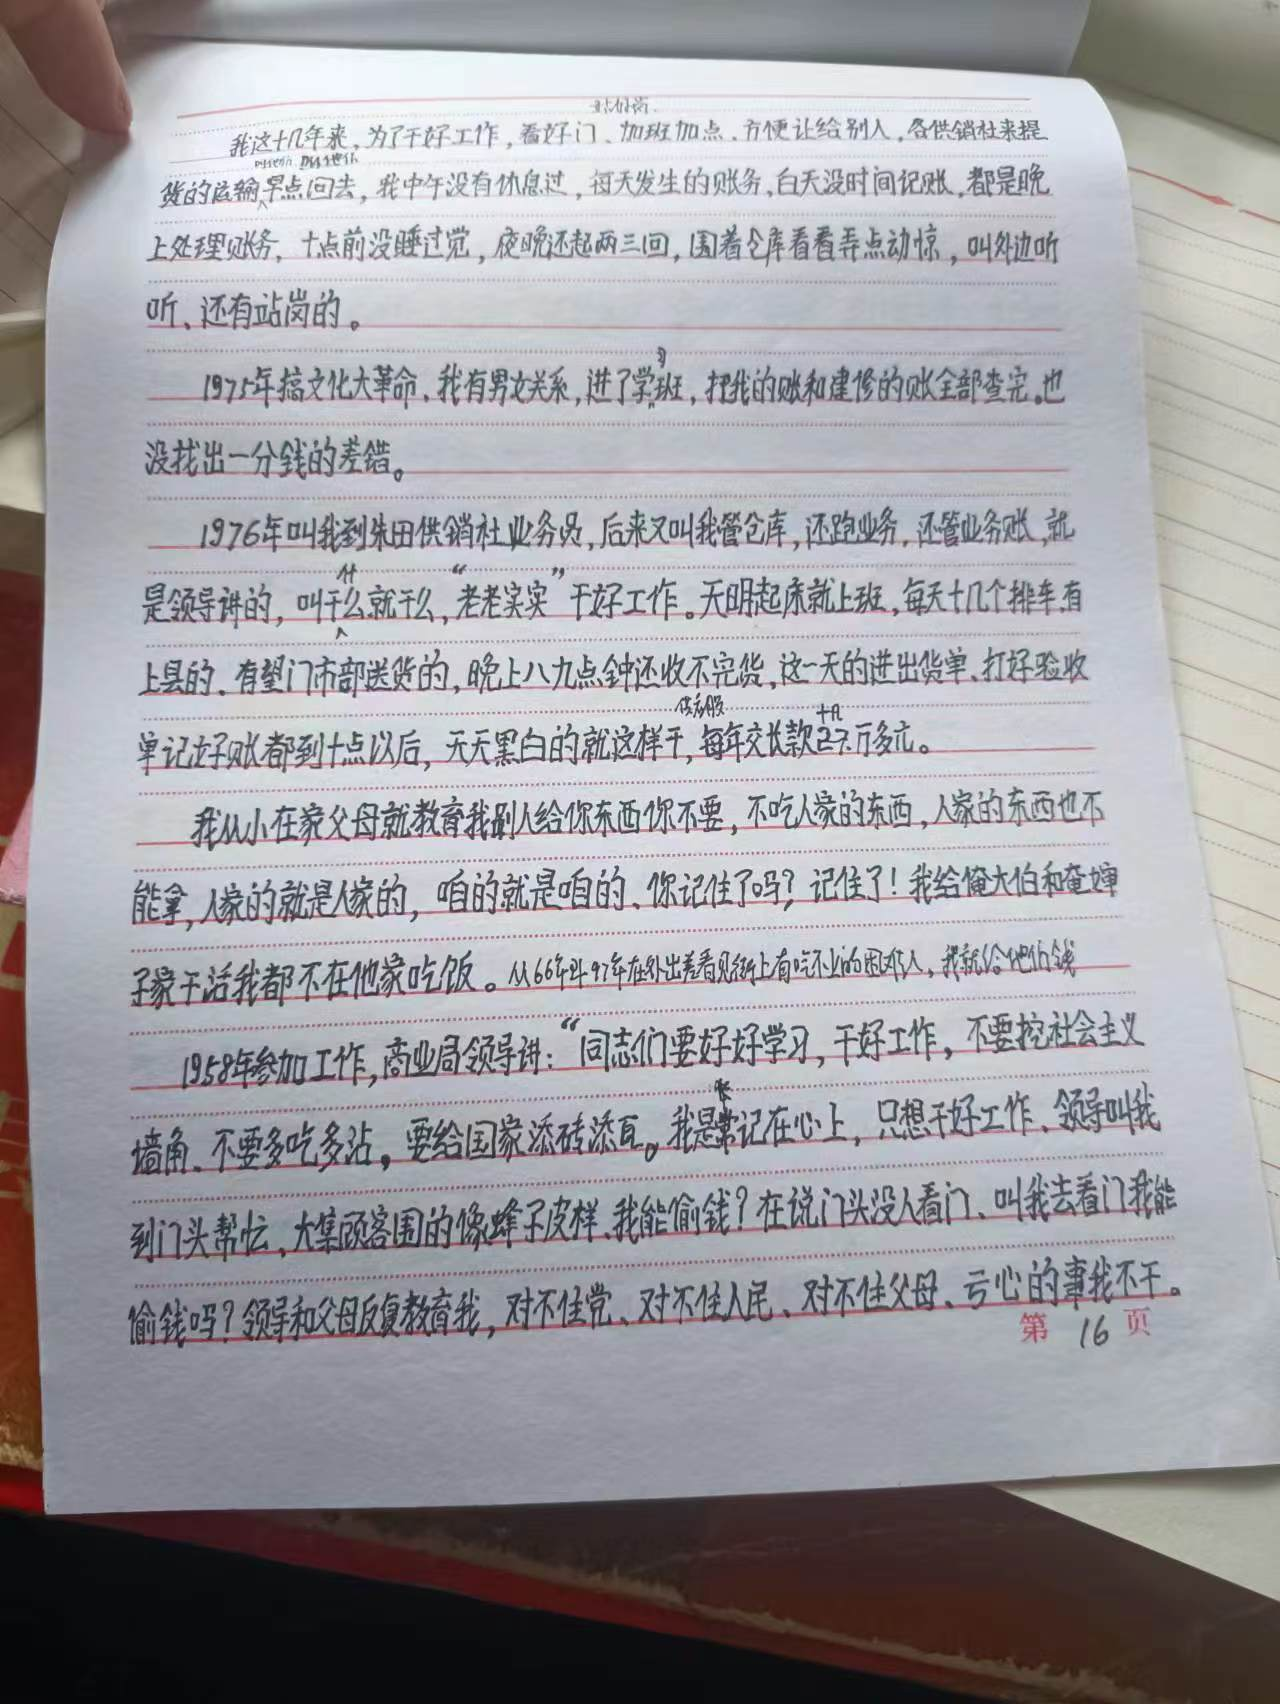 站好岗
我这十几年来，为了干好工作，看好门、加班加点、方便让给别人，各供销社来提
叫他们
货的运输早点回去，我中午没有休息过，每天发生的账务，白天没时间记账，都是晚
上处理账务，十点前没睡过觉，夜晚还起两三回，围着仓库看看弄点动惊，叫外边听
听、还有站岗的。
习
1975年搞文化大革命、我有男女关系，进了学班，把我的账和建修的账全部查完。也
没找出一分钱的差错。
1976年叫我到朱田供销社业务员，后来又叫我管仓库，还跑业务，还管业务账，就
什
是领导讲的，叫干么就干么，“老老实实”干好工作。天明起床就上班，每天十几个排车，有
上县的、有望门市部送货的，晚上八九点钟还收不完货，这一天的进出货单、打好验收
十几
单记好账都到十点以后，天天黑白的就这样干，每年交长款万多元。
我从小在家父母就教育我别人给你东西你不要，不吃人家的东西，人家的东西也不
能拿，人家的就是人家的，咱的就是咱的、你记住了吗？记住了！我给俺大伯和奄婶
子家干活我都不在他家吃饭。从66年到97年在外出差看见街上有吃不上的困难人，我就给他们钱
1958年参加工作，商业局领导讲：“同志们要好好学习，干好工作，不要挖社会主义
墙角、不要多吃多沾，要给国家添砖添瓦。我是常记在心上，只想干好工作、领导叫我
到门头帮忙，大集顾客围的像蜂子皮样、我能偷钱？在说门头没人看门、叫我去看门我能
偷钱吗？领导和父母反复教育我，对不住党、对不住人民、对不住父母、亏心的事我不干。
第16页